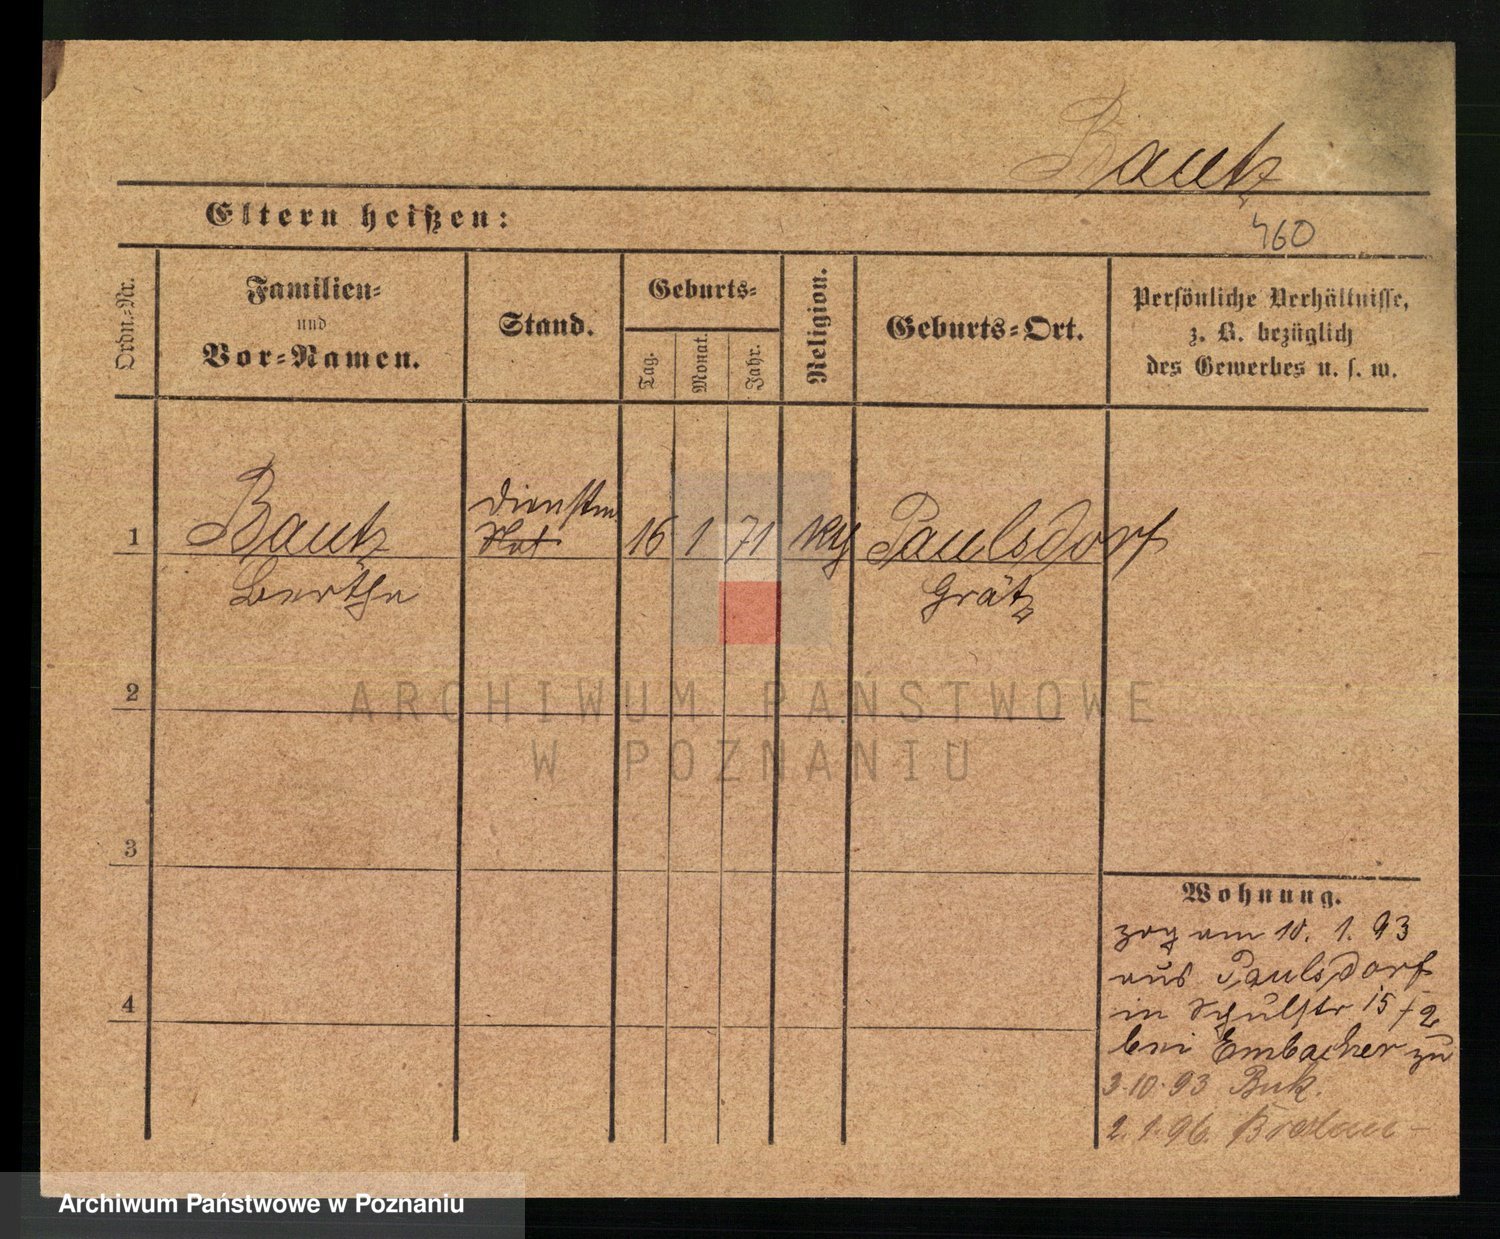 Bautz
460
Eltern heißen:
Ordn.-Nr.
Familien-
und
Vor-Namen.
Stand.
Geburts-
Tag.
Monat.
Jahr.
Religion.
Geburts-Ort.
Persönliche Verhältnisse,
z. B. bezüglich
des Gewerbes u. s. w.
1
Bautz
Bertha
Dienstm
16
1
71
Paulsdorf
Grätz
2
3
4
ARCHIWUM PAŃSTWOWE
W POZNANIU
Wohnung.
zog am 10. 1. 93
aus Paulsdorf
in Schulstr 15 / 2
bei Embacher zu
3.10.93 Buk.
2.1.96. Breslau -
Archiwum Państwowe w Poznaniu